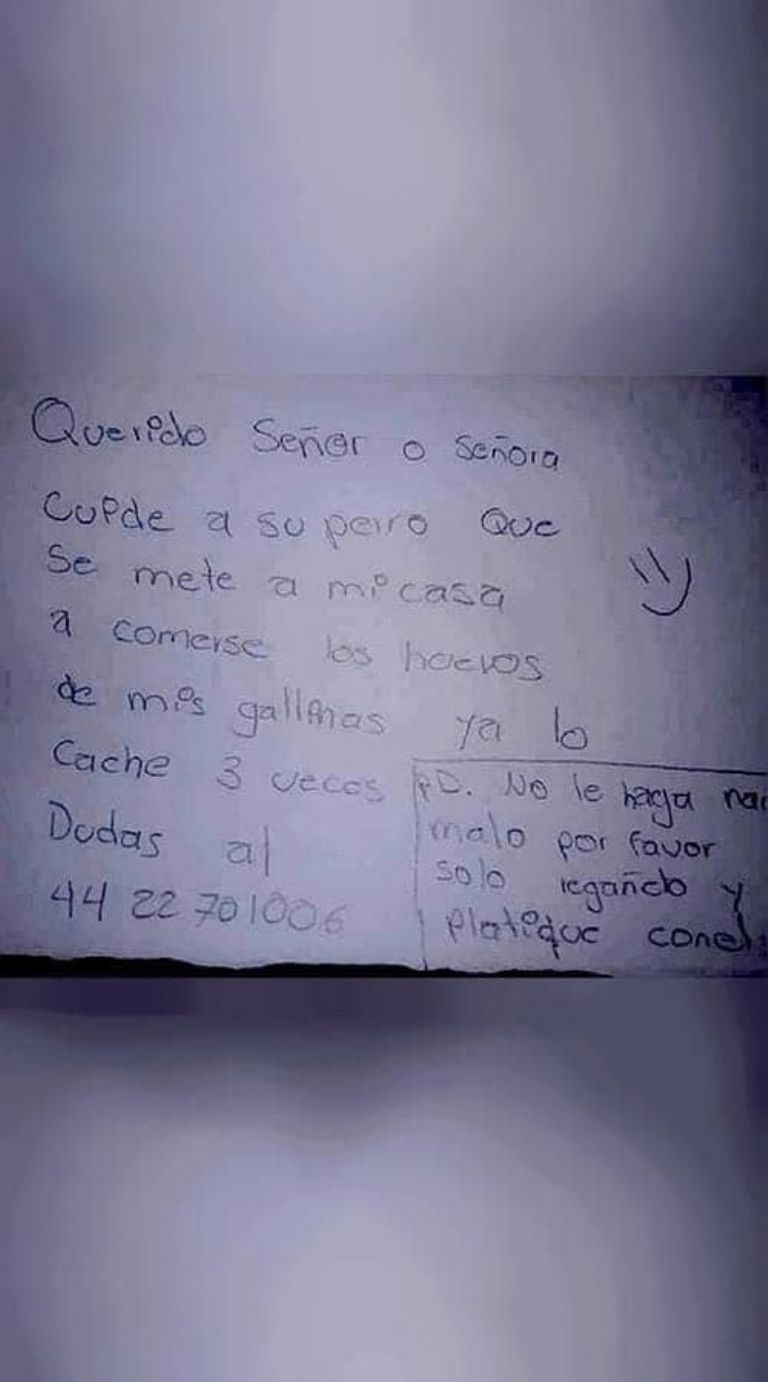 Querido Señor o Señora
Cuide a su perro Que
Se mete a mi casa
a comerse los huevos
de mis gallinas ya lo
Cache 3 veces
Dudas al
44 22 701006
PD. No le haga
malo por favor
solo regañelo y
platique con el